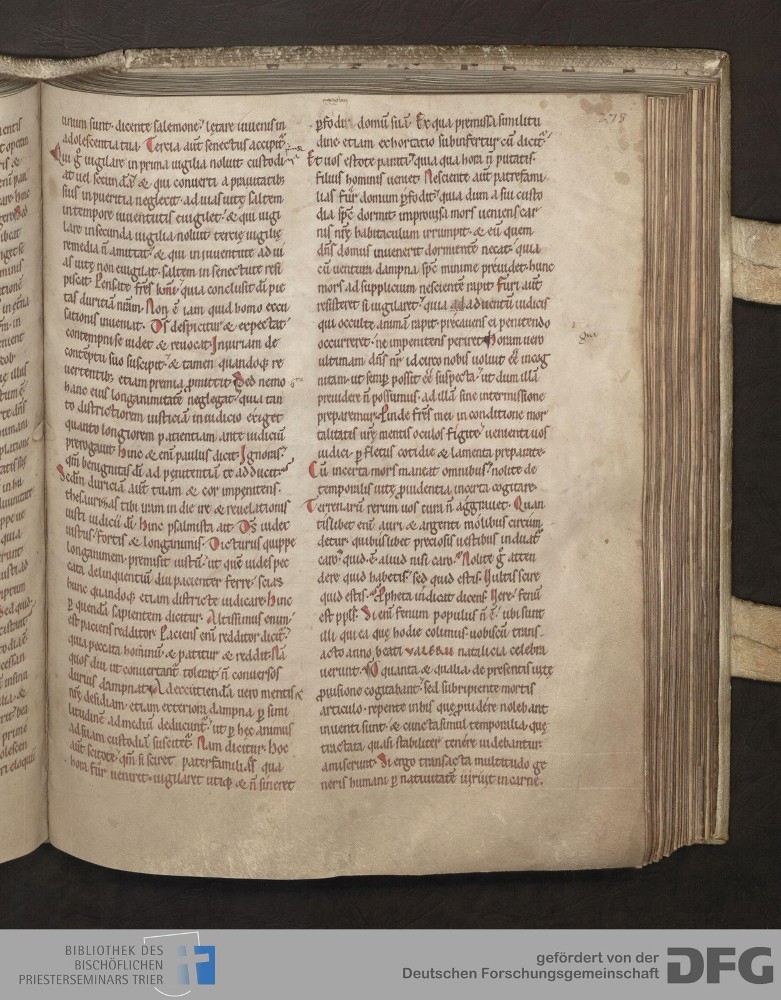 278
unum sunt· dicente salemone· lętare iuuenis in
adolescentia tua· Tercia aut̄ senectus accipit᷑
Qui g̊ uigilare in prima uigilia noluit custodi
at uel secundā· & qui conuerti a prauitatib;
suis in pueritia neglexit· ad uias uitę saltem
in tempore iuuentutis euigilet· & qui uigi
lare in secunda uigilia noluit tercię uigilię
remedia n̄ amittat· & qui in iuuentute ad ui
as uitę non euigilat· saltem in senectute resi
piscat· Pensate fr̄s km̄i· qua conclusit dī pie
tas duritiā nr̄am· Non ē iam quid homo excu
sationis inueniat· Ds̄ despicitur & expectat
contempni se uidet & reuocat· Iniuriam de
contēptu suo suscipit· & tamen quandoq; re
uertentib; etiam premia promittit· Sed nemo
hanc eius longanimitatē neglegat· quia tan
to districtiorem iusticiā in iudicio exiget
quanto longiorem patientiam ante iudiciū
prerogauit· hinc & eni᷑ paulus dicit· Ignoras·
qm̄ benignitas dī ad penitentiā te adducit·
Scd̄m duriciā aut̄ tuam & cor impenitens·
thesaurizas tibi iram in die irę & reuelationis
iusti iudicii dī· hinc psalmista ait· Ds̄ iudex
iustus· fortis & longanimis· Dicturus quippe
longanimem· premisit iustū· ut quē uides pec
cata delinquentiū diu pacienter ferre· scias
hunc quandoq; etiam districte iudicare· hinc
p̱ quendā sapientem dicitur· Altissimus enim
est paciens redditor· Paciens eni᷑ redditor dicit᷑
quia peccata hominū & patitur & reddit· Nā
quos diu ut conuertant᷑ tolerat· n̄ conuersos
durius dampnat· Ad excutienda uero mentis
nr̄ę desidiam· etiam exteriora dampna p̱ simi
litudinē ad mediū deducunt᷑· ut p̱ hęc animus
ad suam custodiā suscitet᷑· Nam dicitur· Hoc
aut̄ scitote· qm̄ si sciret paterfamilias qua
hora fur ueniret· uigilaret utiq; & n̄ sineret
p̱fodi domū suā· Ex qua premissa similitu
dine etiam exhortatio subinfertur cū dicit᷑
Et uos estote parati· quia qua hora n̄ putatis
filius hominis ueniet· Nesciente aut̄ patrefami
lias fur domum p̱fodit· quia dum a sui custo
dia sp̄c dormit· improuisa mors ueniens car
nis nr̄ę habitaculum irrumpit· & eū quem
dn̄s domus inuenerit dormientē necat· quia
cū uentura dampna sp̄c minime preuidet· hunc
mors ad supplicium nescientē rapit· Furi aut̄
resisteret si uigilaret· quia aduentū iudicis
qui occulte animā rapit· precauens ei penitendo
occurreret· ne impenitens periret· Horam uero
ultimam dn̄s nr̄ idcirco nobis uoluit ēē incog
nitam· ut semp̱ possit ēē suspecta· ut dum illā
preuidere n̄ possumus· ad illā sine intermissione
preparemur· Proinde fr̄s mei in conditione mor
talitatis ur̄ę mentis oculos figite· uenienti uos
iudici p̱ fletus cotidie & lamenta preparate·
Cū incerta mors maneat omnibus· nolite de
temporalis uitę prouidentia incerta cogitare·
Terrenarū rerum uos cura n̄ aggrauet· Quan
tislibet eni᷑ auri & argenti molibus circum
detur· quibuslibet preciosis uestibus induat᷑
caro· quid ē aliud nisi caro· Nolite g̊ atten
dere quid habetis· sed quid estis· Uultis scire
quid estis· Ppheta indicat dicens· Uere fenū
est pp̱ls· Si eni᷑ fenum populus n̄ ē· ubi sunt
illi qui ea quę hodie colimus uobiscū trans
acto anno beati VALERII natalicia celebra
uerunt· O quanta & qualia de presentis uitę
prouisione cogitabant· sed subripiente mortis
articulo repente in his quę preuidere nolebant
inuenti sunt· & cuncta simul temporalia quę
tractata quasi stabiliter tenere uidebantur
amiserunt· Si ergo transacta multitudo ge
neris humani p̱ natiuitatē uiruit in carne·
BIBLIOTHEK DES
BISCHÖFLICHEN
PRIESTERSEMINARS TRIER
gefördert von der
Deutschen Forschungsgemeinschaft
DFG